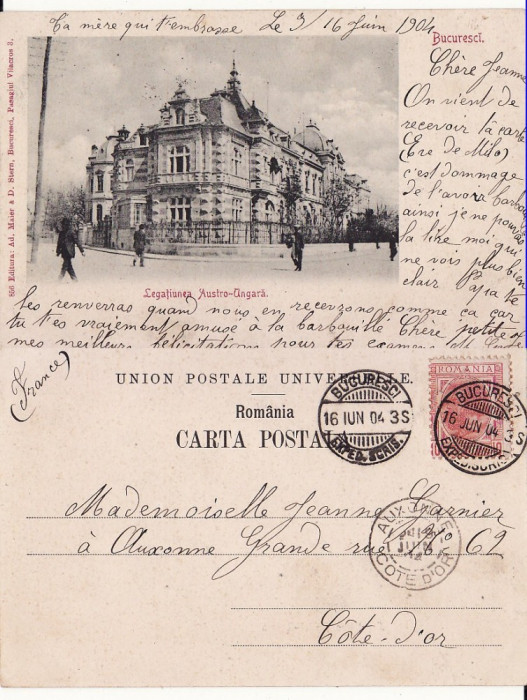 Ta mère qui t'embrasse Le 3/16 Juin 1904
Bucurescĭ.
856 Editura: Ad. Maier & D. Stern, Bucuresci, Pasagiul Vilacros 8.
Chère Jeanne
On vient de
recevoir ta carte
(Ere de Milo)
c'est dommage
de l'avoir barbouillé
ainsi je ne pouvais
la lire moi qui
ne vois plus bien
clair
Legațiunea Austro-Ungară.
les renverras quand nous en recevrons comme ça car
tu t'es vraiement amusé à la barbouille Chère petite
mes meilleures félicitations pour tes examens
(France)
UNION POSTALE UNIVERSELLE.
România
CARTA POSTALĂ
BUCURESCI
16 IUN 04 3S
EXPED. SCRIS.
ROMANIA
BUCURESCI
16 IUN 04 3S
EXPED. SCRIS.
Mademoiselle Jeanne Garnier
à Auxonne Grande rue No 62
AUXONNE
JUIN
COTE D'OR
Côte-d'or